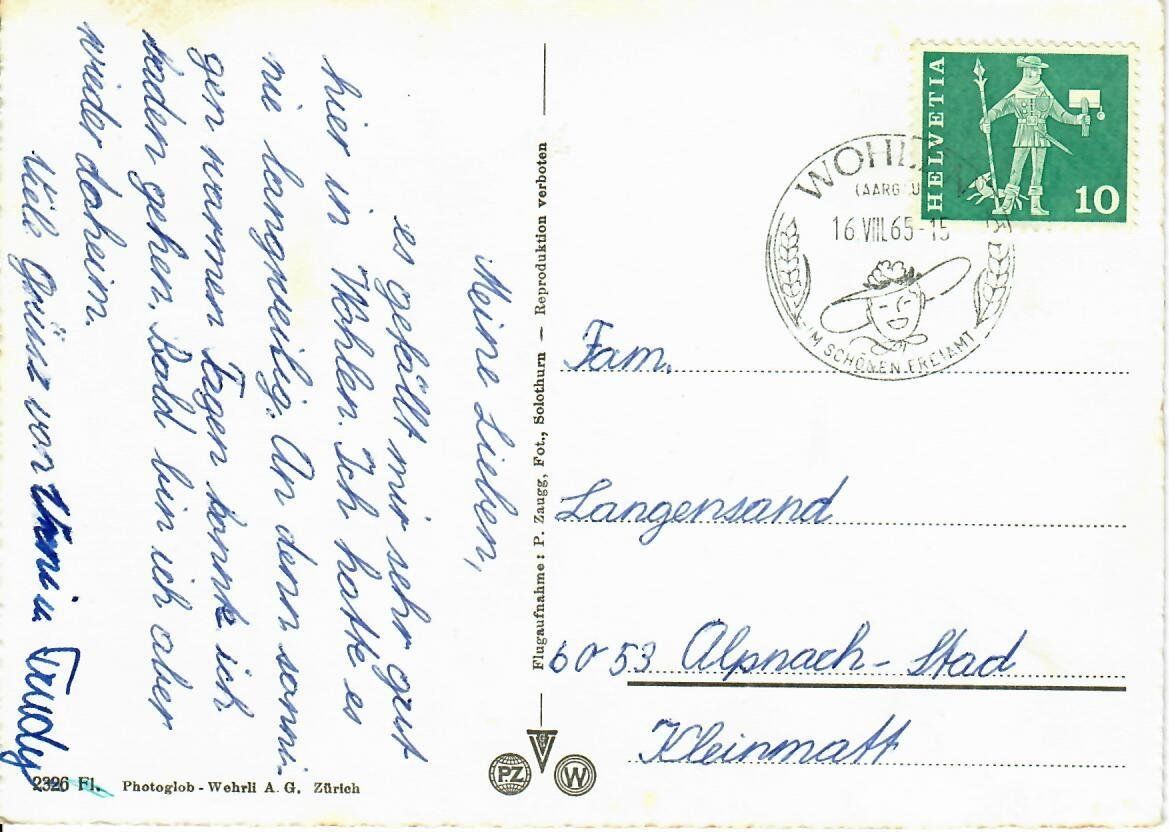 Meine Lieben,
es gefällt mir sehr gut
hier in Wohlen. Ich hatte es
nie langweilig. An denn sonni-
gen warmen Tagen konnte ich
baden gehen. Bald bin ich aber
wieder daheim.
Viele Grüsse von Vreni u. Trudy
Flugaufnahme: P. Zaugg, Fot., Solothurn — Reproduktion verboten
HELVETIA
10
WOHLEN
(AARGAU)
16.VIII.65-15
IM SCHÖNEN FREIAMT
Fam.
Langensand
6053 Alpnach-Stad
Kleinmatt
G
PZ
W
2326 Fl. Photoglob - Wehrli A. G. Zürich